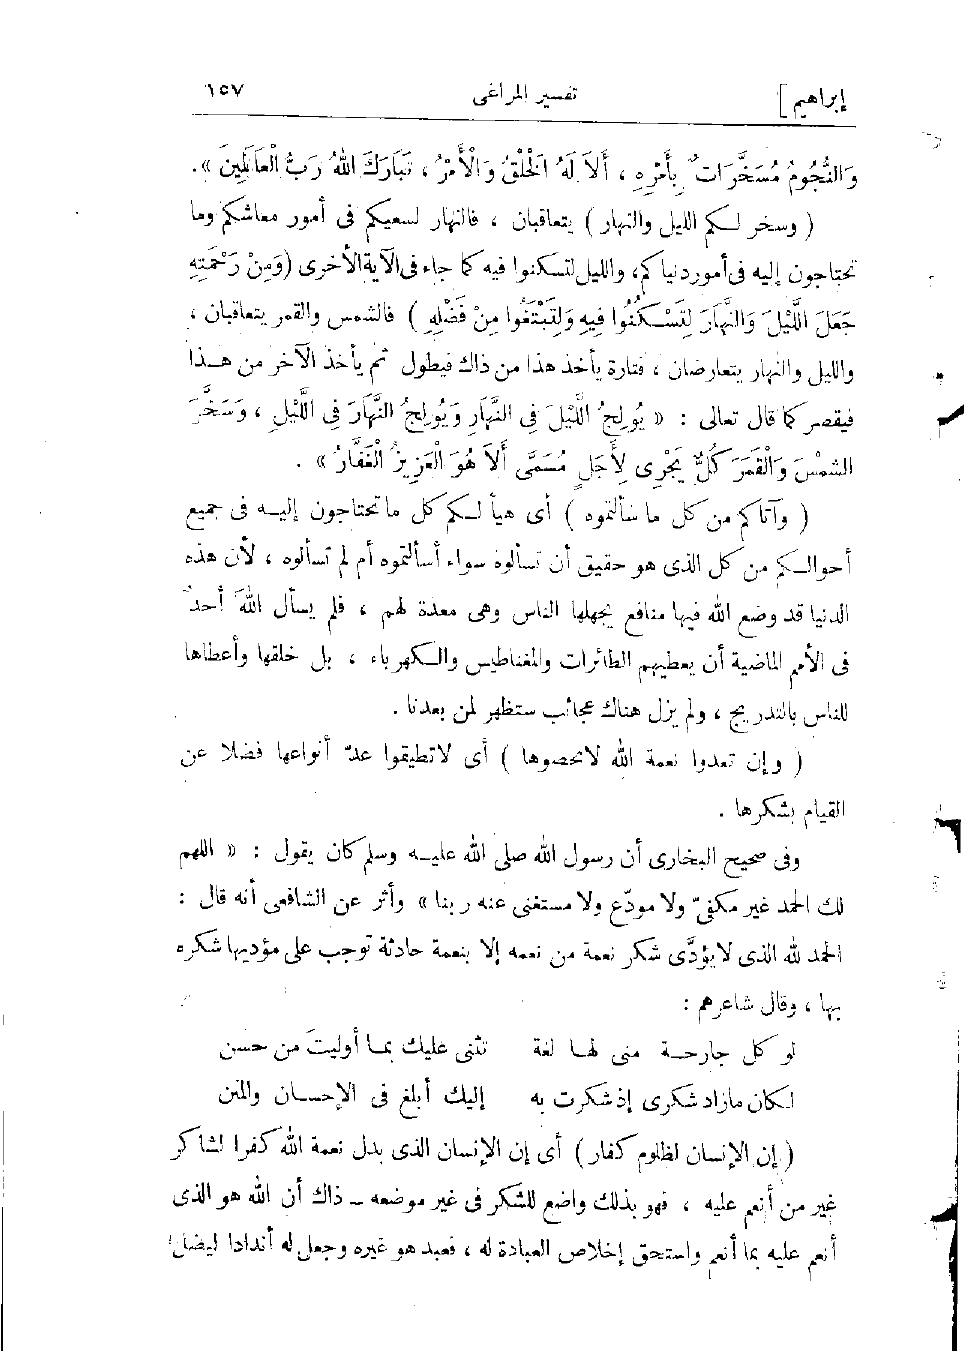 إبراهيم] تفسير المراغى ١٥٧
وَالنُّجُومُ مُسَخَّرَاتٌ بِأَمْرِهِ ، أَلاَ لَهُ الْخَلْقُ وَالْأَمْرُ ، تَبَارَكَ اللهُ رَبُّ الْعَالَمِينَ » .
( وسخر لكم الليل والنهار ) يتعاقبان ، فالنهار لسعيكم فى أمور معاشكم وما
تحتاجون إليه فى أمور دنياكم، والليل لتسكنوا فيه كما جاء فى الآية الأخرى (وَمِنْ رَحْمَتِهِ
جَعَلَ اللَّيْلَ وَالنَّهَارَ لِتَسْكُنُوا فِيهِ وَلِتَبْتَغُوا مِنْ فَضْلِهِ ) فالشمس والقمر يتعاقبان ،
والليل والنهار يتعارضان ، فتارة يأخذ هذا من ذاك فيطول ثم يأخذ الآخر من هذا
فيقصر كما قال تعالى : « يُولِجُ اللَّيْلَ فِى النَّهَارِ وَيُولِجُ النَّهَارَ فِى اللَّيْلِ ، وَسَخَّرَ
الشمْسَ وَالْقَمَرَ كُلٌّ يَجْرِى لِأَجَلٍ مُسَمًّى أَلاَ هُوَ الْعَزِيزُ الْغَفَّارُ » .
( وآتاكم من كل ما سألتموه ) أى هيأ لكم كل ما تحتاجون إليه فى جميع
أحوالكم من كل الذى هو حقيق أن تسألوه سواء أسألتموه أم لم تسألوه ، لأن هذه
الدنيا قد وضع الله فيها منافع يجهلها الناس وهى معدة لهم ، فلم يسأل اللهَ أحدٌ
فى الأمم الماضية أن يعطيهم الطائرات والمغناطيس والكهرباء ، بل خلقها وأعطاها
للناس بالتدريج ، ولم يزل هناك عجائب ستظهر لمن بعدنا .
( وإن تعدوا نعمة الله لاتحصوها ) أى لاتطيقوا عدّ أنواعها فضلا عن
القيام بشكرها .
وفى صحيح البخارى أن رسول الله صلى الله عليه وسلم كان يقول : « اللهم
لك الحمد غير مكفىّ ولا مودّع ولا مستغنى عنه ربنا » وأثر عن الشافعى أنه قال :
الحمد لله الذى لا يؤدَّى شكر نعمة من نعمه إلا بنعمة حادثة توجب على مؤديها شكره
بها ، وقال شاعرهم :
لو كل جارحة منى لها لغة تثنى عليك بما أوليتَ من حسن
لكان مازاد شكرى إذ شكرت به إليك أبلغ فى الإحسان والمنن
( إن الإنسان لظلوم كفار ) أى إن الإنسان الذى بدل نعمة الله كفرا لشاكر
غير من أنعم عليه ، فهو بذلك واضع للشكر فى غير موضعه – ذاك أن الله هو الذى
أنعم عليه بما أنعم واستحق إخلاص العبادة له ، فعبد هو غيره وجعل له أندادا ليضل